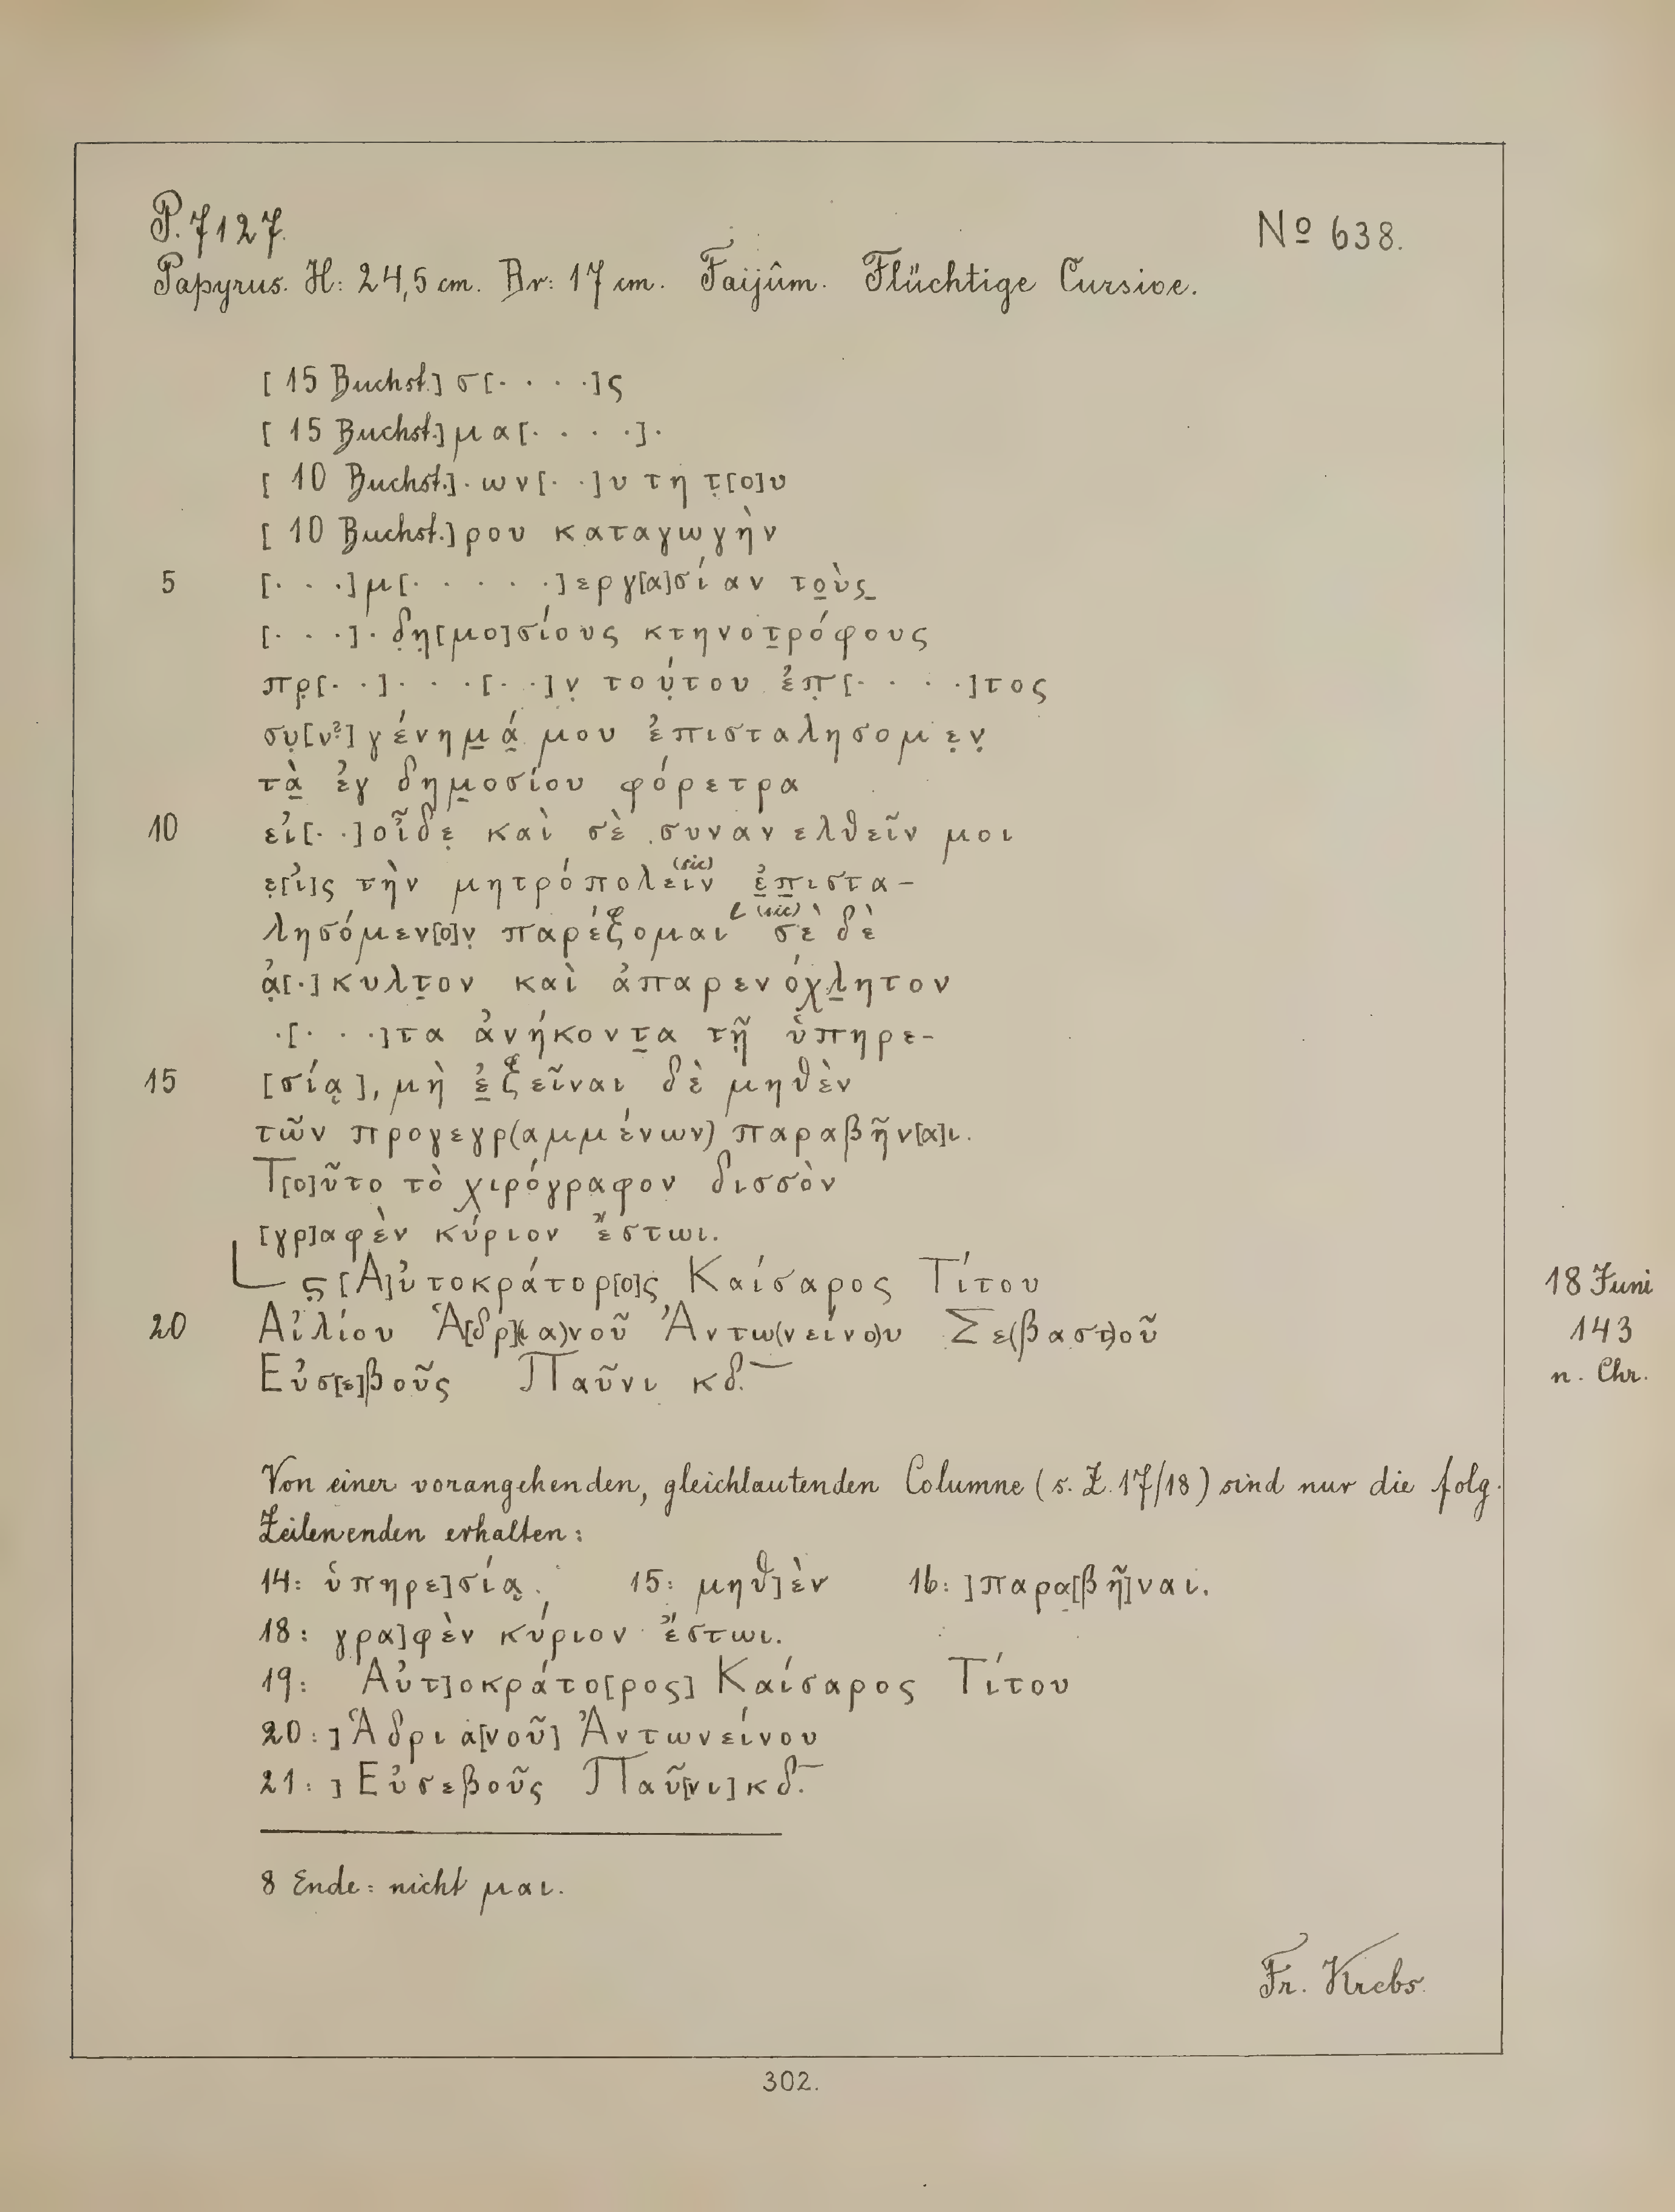 P. 7127.
No 638.
Papyrus. H: 24,5 cm. Br: 17 cm. Faijûm. Flüchtige Cursive.
[ 15 Buchst.] σ[· · · ·]ς
[ 15 Buchst.] μα[· · · ·]·
[ 10 Buchst.]·ων[· ·]υ τη τ̣[ο]υ
[ 10 Buchst.]ρου καταγωγὴν
5 [· · ·]μ[· · · · ·]εργ[α]σίαν το̣ὺς̣
[· · ·]· δ̣η̣[μο]σίους κτηνοτ̣ρόφους
πρ̣[· ·]· · ·[· ·]ν̣ τού̣του ἐπ̣[· · · ·]τος
συ̣[ν?]γένημ̣ά̣ μου ἐπισταλησομε̣ν̣
τὰ̣ ἐγ δημ̣οσίου φόρετρα
10 εἰ[· ·]οἶδε̣ καὶ σὲ συνανελθεῖν μοι
ε̣[ἰ]ς τὴν μητρόπολειν (sic) ἐ̣π̣ιστα-
λησόμεν[ο]ν̣ παρέξομαι ʽ (sic) σὲ ʼ δὲ
ἀ̣[·]κυλτ̣ον καὶ ἀπαρενόχλ̣ητον
·[· · ·]τα ἀνήκοντ̣α τῇ ὑπηρε-
15 [σίᾳ], μὴ ἐ̣ξεῖναι δὲ μηθὲν
τῶν προγεγρ(αμμένων) παραβῆν[α]ι.
Τ[ο]ῦτο τὸ χιρόγραφον δισσὸν
[γρ]αφὲν κύριον ἔστωι.
L ϛ [Α]ὐτοκράτορ[ο]ς Καίσαρος Τίτου
18 Juni
20 Αἰλίου Ἁ[δρ](ια)νοῦ Ἀντω(νείνο)υ Σε(βαστ)οῦ
143
Εὐσ[ε]βοῦς Παῦνι κδ.̅
n. Chr.
Von einer vorangehenden, gleichlautenden Columne (s. Z. 17/18) sind nur die folg.
Zeilenenden erhalten:
14: ὑπηρε]σίᾳ. 15: μηθ]ὲν 16: ]παρα̣[βῆ]ναι.
18: γρα]φὲν κύριον ἔστωι.
19: Αὐτ]οκράτο[ρος] Καίσαρος Τίτου
20: ]Ἁδρια[νοῦ] Ἀντωνείνου
21: ] Εὐσεβοῦς Παῦ[νι] κδ.̅
8 Ende: nicht μαι.
Fr. Krebs.
302.